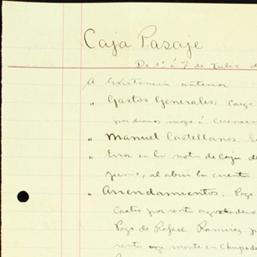 Caja Pasaje
De 1º á 7 de Julio d
A existencia anterior
" Gastos Generales: Carg
" Manuel Castellanos.
" Error en la nota de Caja de
al abrir la cuenta
" Arrendamientos: Pago
Castro por renta
Pago de Rafael Ramirez p
renta